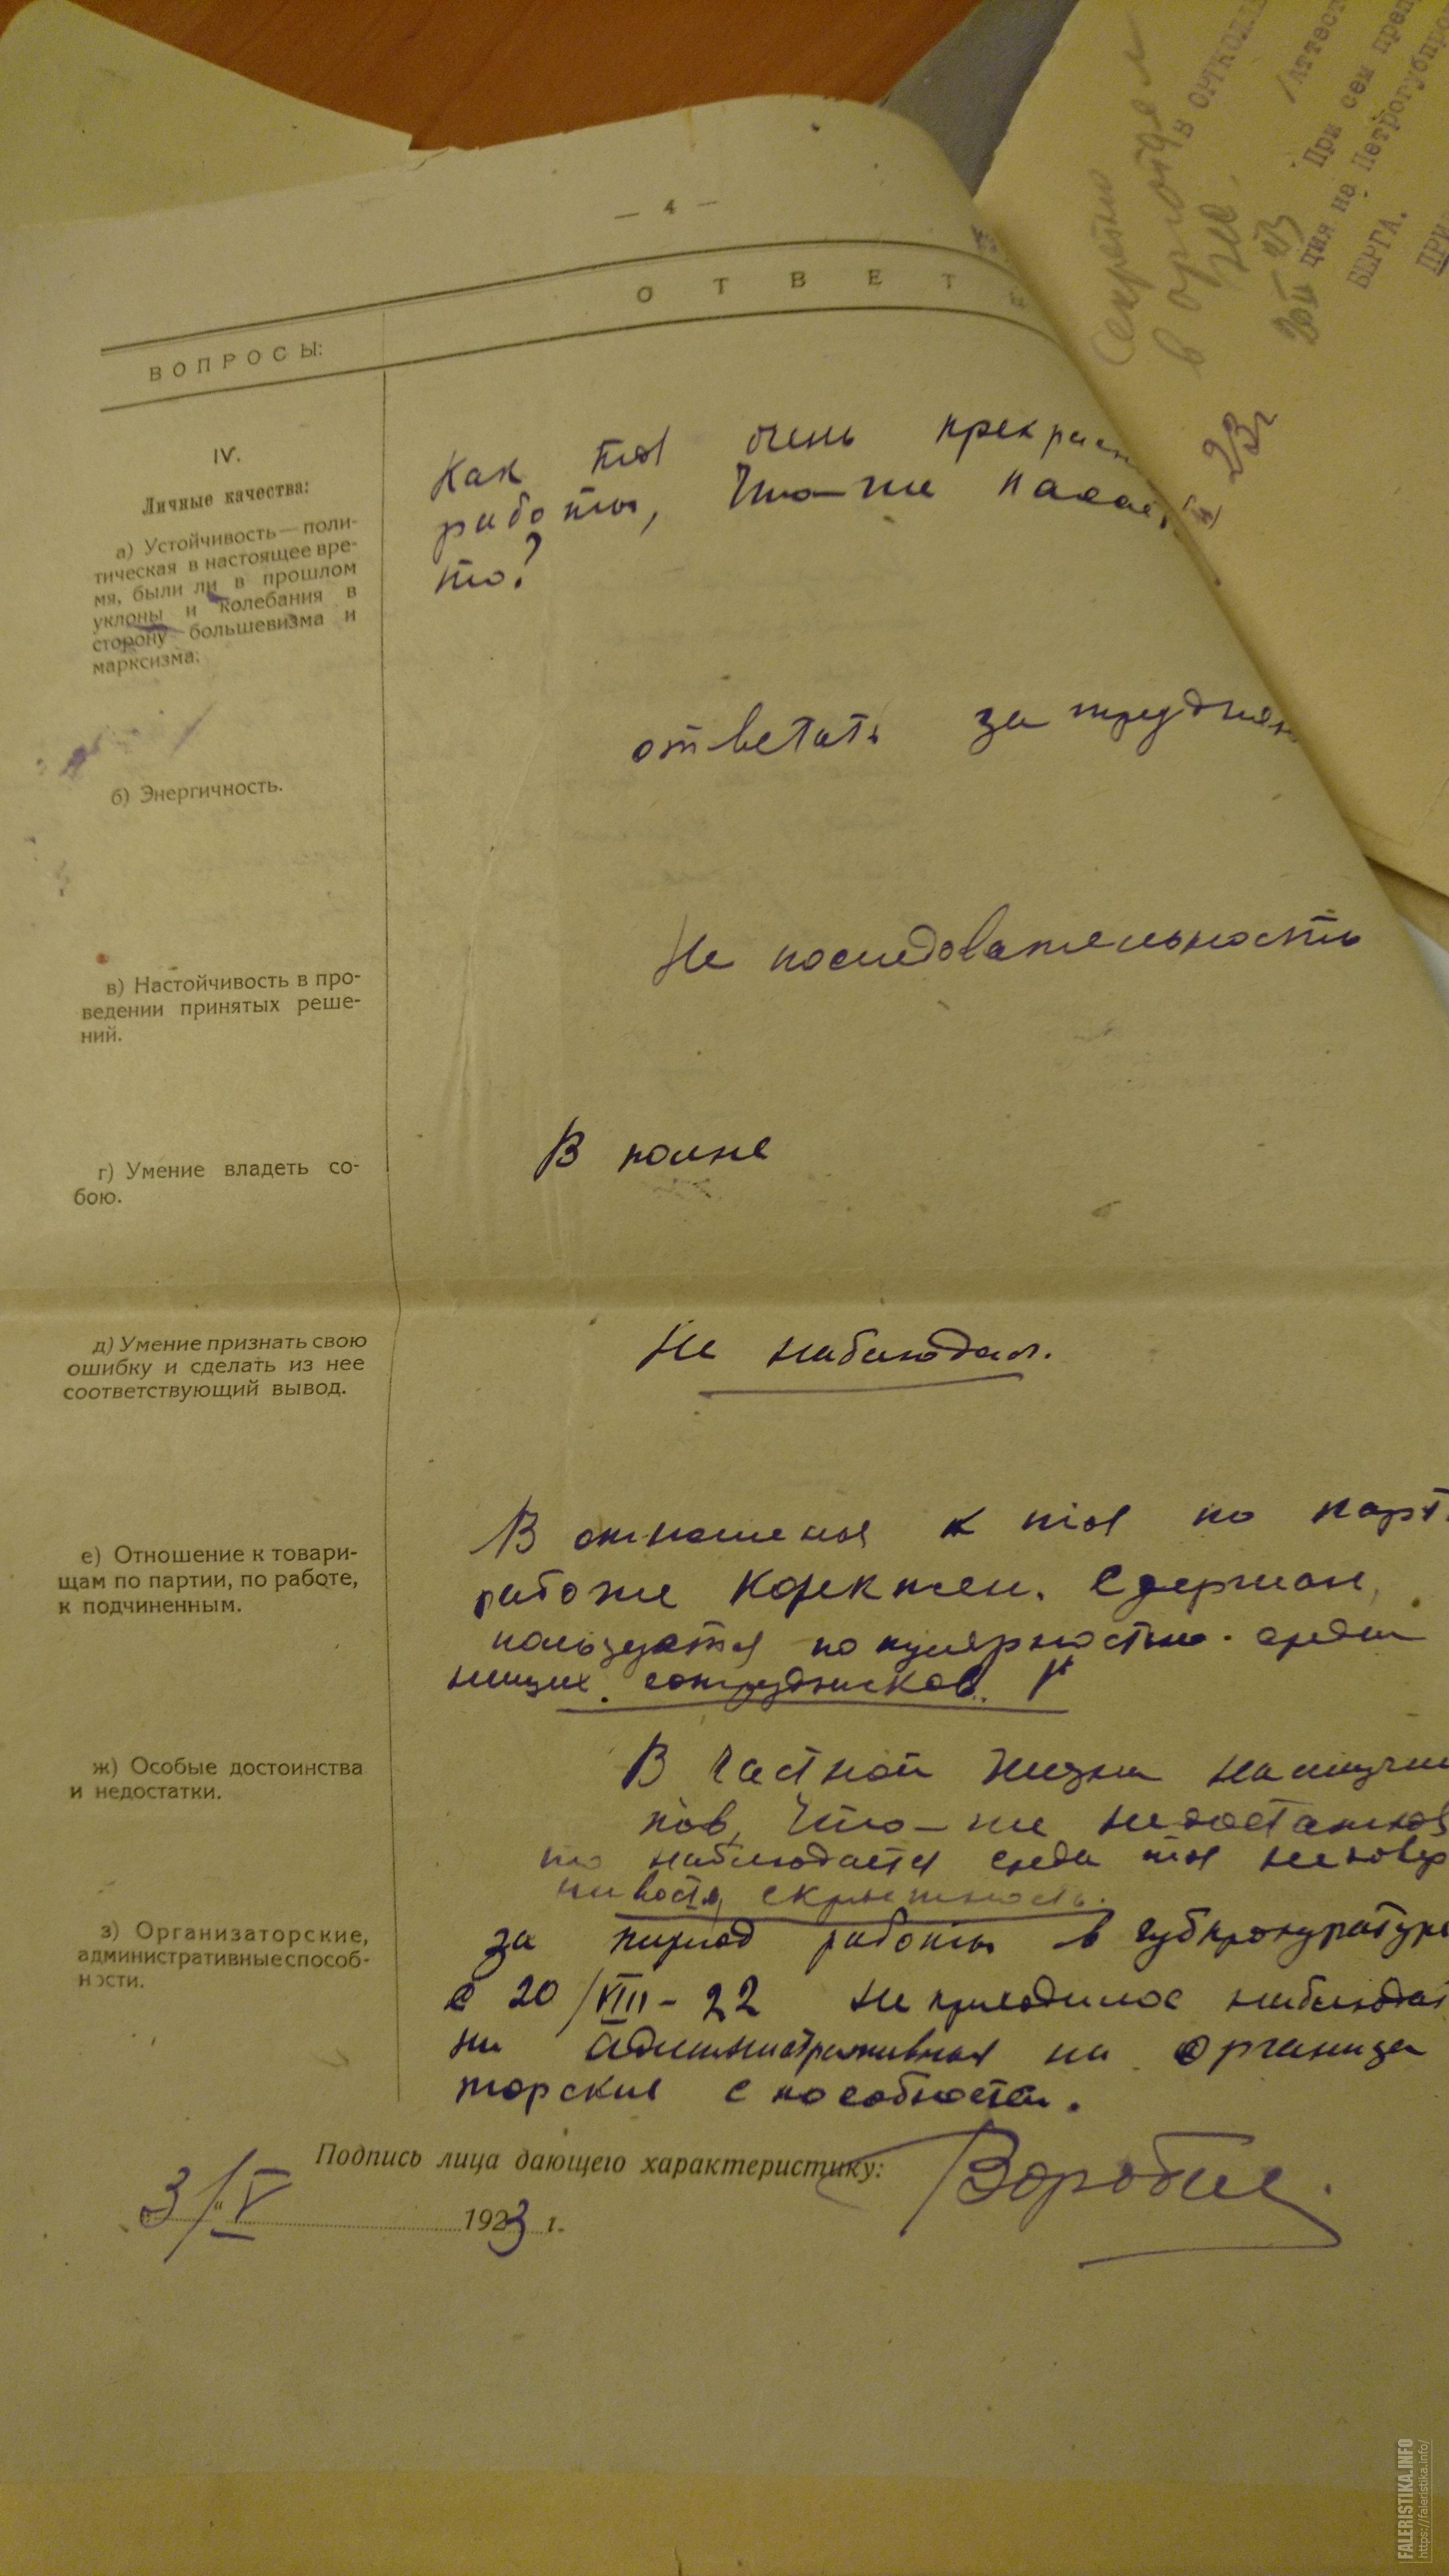 — 4 —
ВОПРОСЫ:
ОТВЕТ
IV.
Личные качества:
а) Устойчивость — поли-
тическая в настоящее вре-
мя, были ли в прошлом
уклоны и колебания в
сторону большевизма и
марксизма:
Как очень
работы, Что-же
то?
б) Энергичность.
ответить затрудняю
в) Настойчивость в про-
ведении принятых реше-
ний.
Не последовательность
г) Умение владеть со-
бою.
В полне
д) Умение признать свою
ошибку и сделать из нее
соответствующий вывод.
Не наблюдал.
е) Отношение к товари-
щам по партии, по работе,
к подчиненным.
В отношения к по парт.
работе Коректен. Сдержан,
пользуется популярностью среди
низших сотрудников.
ж) Особые достоинства
и недостатки.
В частной жизни
Что-же недостатков
то наблюдается среди
скрытность.
з) Организаторские,
административные способ-
ности.
За период работы в губпрокуратуре
с 20/VIII-22 не приходилос наблюдат
ни административная ни организа
торские способности.
Подпись лица дающего характеристику:
3/V 1923 г.
Секретно
в орготдел
В ОРГКОЛЛЕ
/Аттест
При сем преп
ция на Петрогубпро
БЕРГА.
ПРИ
23г
FALERISTIKA.INFO
https://faleristika.info/